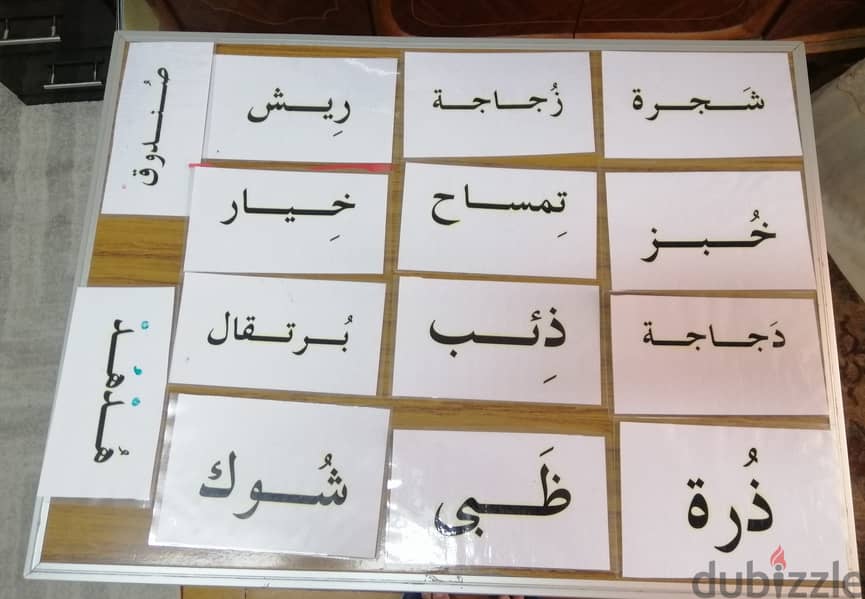 شَجرة
زُجاجة
رِيش
صُندوق
خُبز
تِمساح
خِيار
دَجاجة
ذِئب
بُرتقال
هُدْهُدْ
ذُرة
ظَبى
شُوك
dubizzle